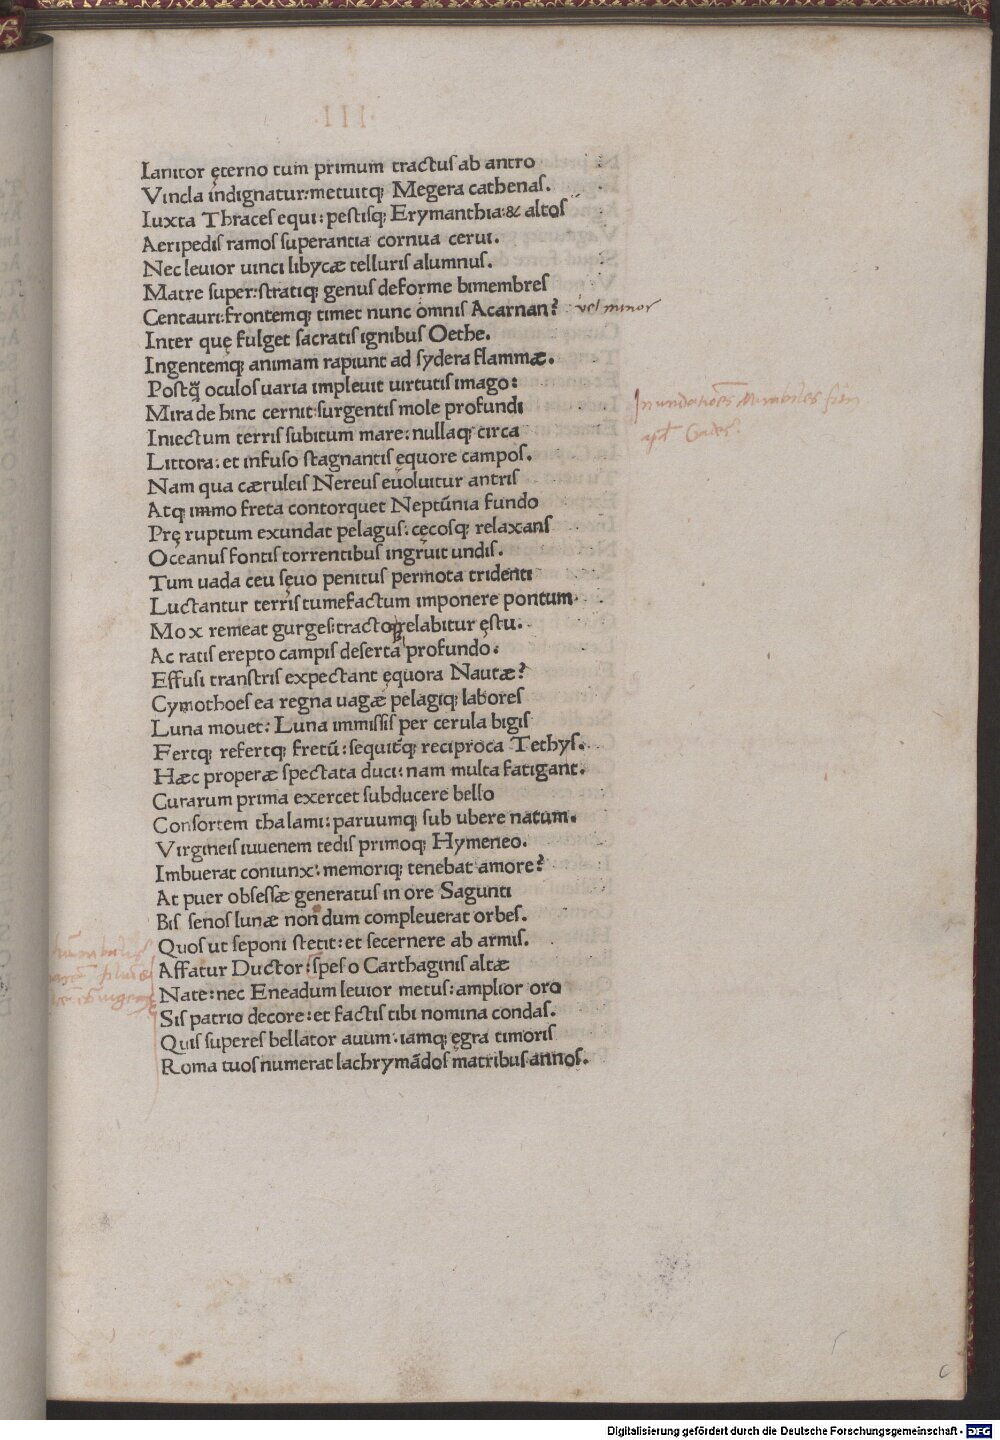 ·III·
Ianitor ęterno tum primum tractus ab antro
Vincla indignatur: metuitq; Megera cathenas.
Iuxta Thraces equi: pestisq; Erymanthia: & altos
Aeripedis ramos superantia cornua cerui.
Nec leuior uinci libycæ telluris alumnus.
Matre super: stratiq; genus deforme bimembres
Centauri: frontemq; timet nunc omnis Acarnan? vel minor
Inter quę fulget sacratis ignibus Oethe.
Ingentemq; animam rapiunt ad sydera flammæ.
Postq̃ oculos uaria impleuit uirtutis imago:
Mira de hinc cernit: surgentis mole profundi
Iniectum terris subitum mare: nullaq; circa
Littora: et infuso stagnantis ęquore campos.
Nam qua cæruleis Nereus euoluitur antris
Atq; immo freta contorquet Neptūnia fundo
Prę ruptum exundat pelagus: cęcosq; relaxans
Oceanus fontis torrentibus ingruit undis.
Tum uada ceu sęuo penitus permota tridenti
Luctantur terris tumefactum imponere pontum.
Mox remeat gurges: tractoq; relabitur ęstu.
Ac ratis erepto campis deserta profundo:
Effusi transtris expectant ęquora Nautæ?
Cymothoes ea regna uagæ pelagiq; labores
Luna mouet: Luna immissis per cerula bigis
Fertq; refertq; fretū: sequit̃q; reciproca Tethys.
Hæc properæ spectata duci: nam multa fatigant.
Curarum prima exercet subducere bello
Consortem thalami: paruumq; sub ubere natum.
Virgineis iuuenem tedis primoq; Hymeneo.
Imbuerat coniunx: memoriq; tenebat amore?
At puer obsessæ generatus in ore Sagunti
Bis senos lunæ non dum compleuerat orbes.
Quos ut seponi stetit: et secernere ab armis.
Affatur Ductor: spes o Carthaginis altæ
Nate: nec Eneadum leuior metus: amplior oro
Sis patrio decore: et factis tibi nomina condas.
Quis superes bellator auum: iamq; ęgra timoris
Roma tuos numerat lachrymādos matribus annos.
Inundationes mirabiles
apd Gades.
c
Digitalisierung gefördert durch die Deutsche Forschungsgemeinschaft - DFG